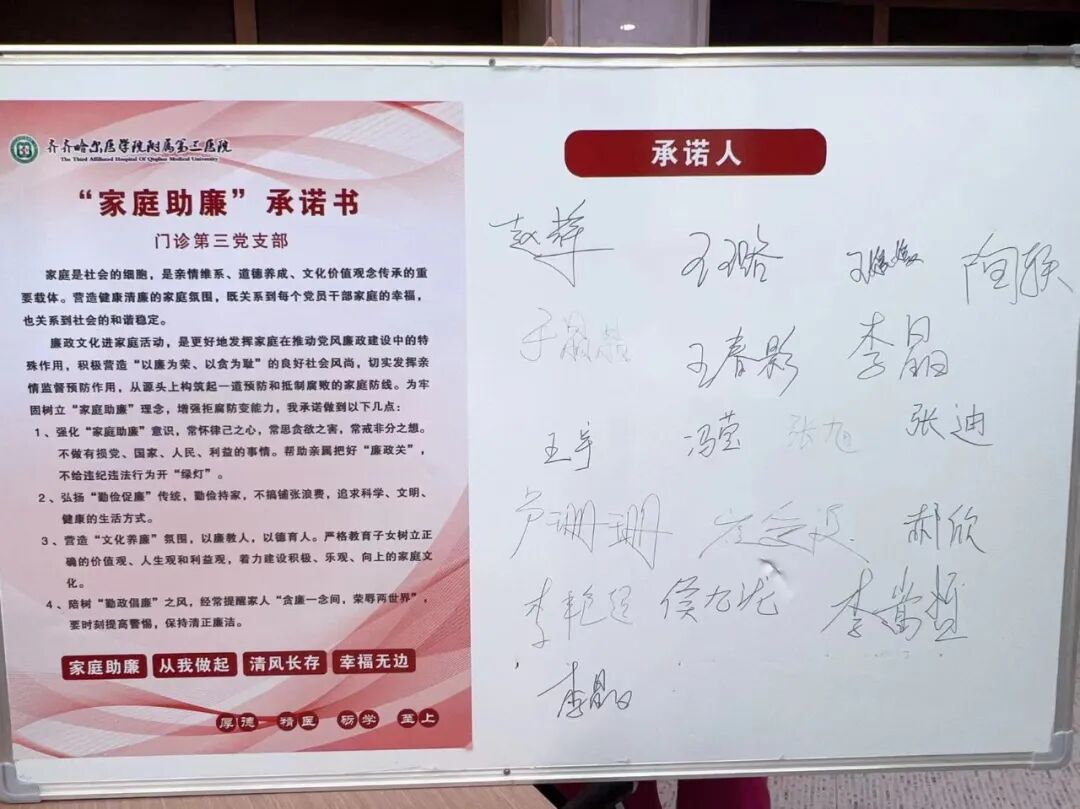 齐齐哈尔医学院附属第三医院
The Third Affiliated Hospital Of Qiqihar Medical University
“家庭助廉”承诺书
门诊第三党支部
家庭是社会的细胞，是亲情维系、道德养成、文化价值观念传承的重
要载体。营造健康清廉的家庭氛围，既关系到每个党员干部家庭的幸福，
也关系到社会的和谐稳定。
廉政文化进家庭活动，是更好地发挥家庭在推动党风廉政建设中的特
殊作用，积极营造“以廉为荣、以贪为耻”的良好社会风尚，切实发挥亲
情监督预防作用，从源头上构筑起一道预防和抵制腐败的家庭防线。为牢
固树立“家庭助廉”理念，增强拒腐防变能力，我承诺做到以下几点：
1、强化“家庭助廉”意识，常怀律己之心，常思贪欲之害，常戒非分之想。
不做有损党、国家、人民、利益的事情。帮助亲属把好“廉政关”，
不给违纪违法行为开“绿灯”。
2、弘扬“勤俭促廉”传统，勤俭持家，不搞铺张浪费，追求科学、文明、
健康的生活方式。
3、营造“文化养廉”氛围，以廉教人，以德育人。严格教育子女树立正
确的价值观、人生观和利益观，着力建设积极、乐观、向上的家庭文
化。
4、陪树“勤政倡廉”之风，经常提醒家人“贪廉一念间，荣辱两世界”，
要时刻提高警惕，保持清正廉洁。
家庭助廉 从我做起 清风长存 幸福无边
厚德 精医 砺学 至上
承诺人
王璐
王春影 李晶
王宇 冯莹 张旭 张迪
卢珊珊 郝欣
李艳超 侯九龙
李晶